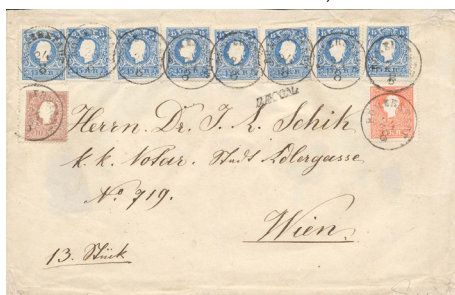 RECOM.
Herrn Dr. J. L. Schik
k. k. Notar. Stadt Adlergasse
No 719.
Wien.
13. Stück